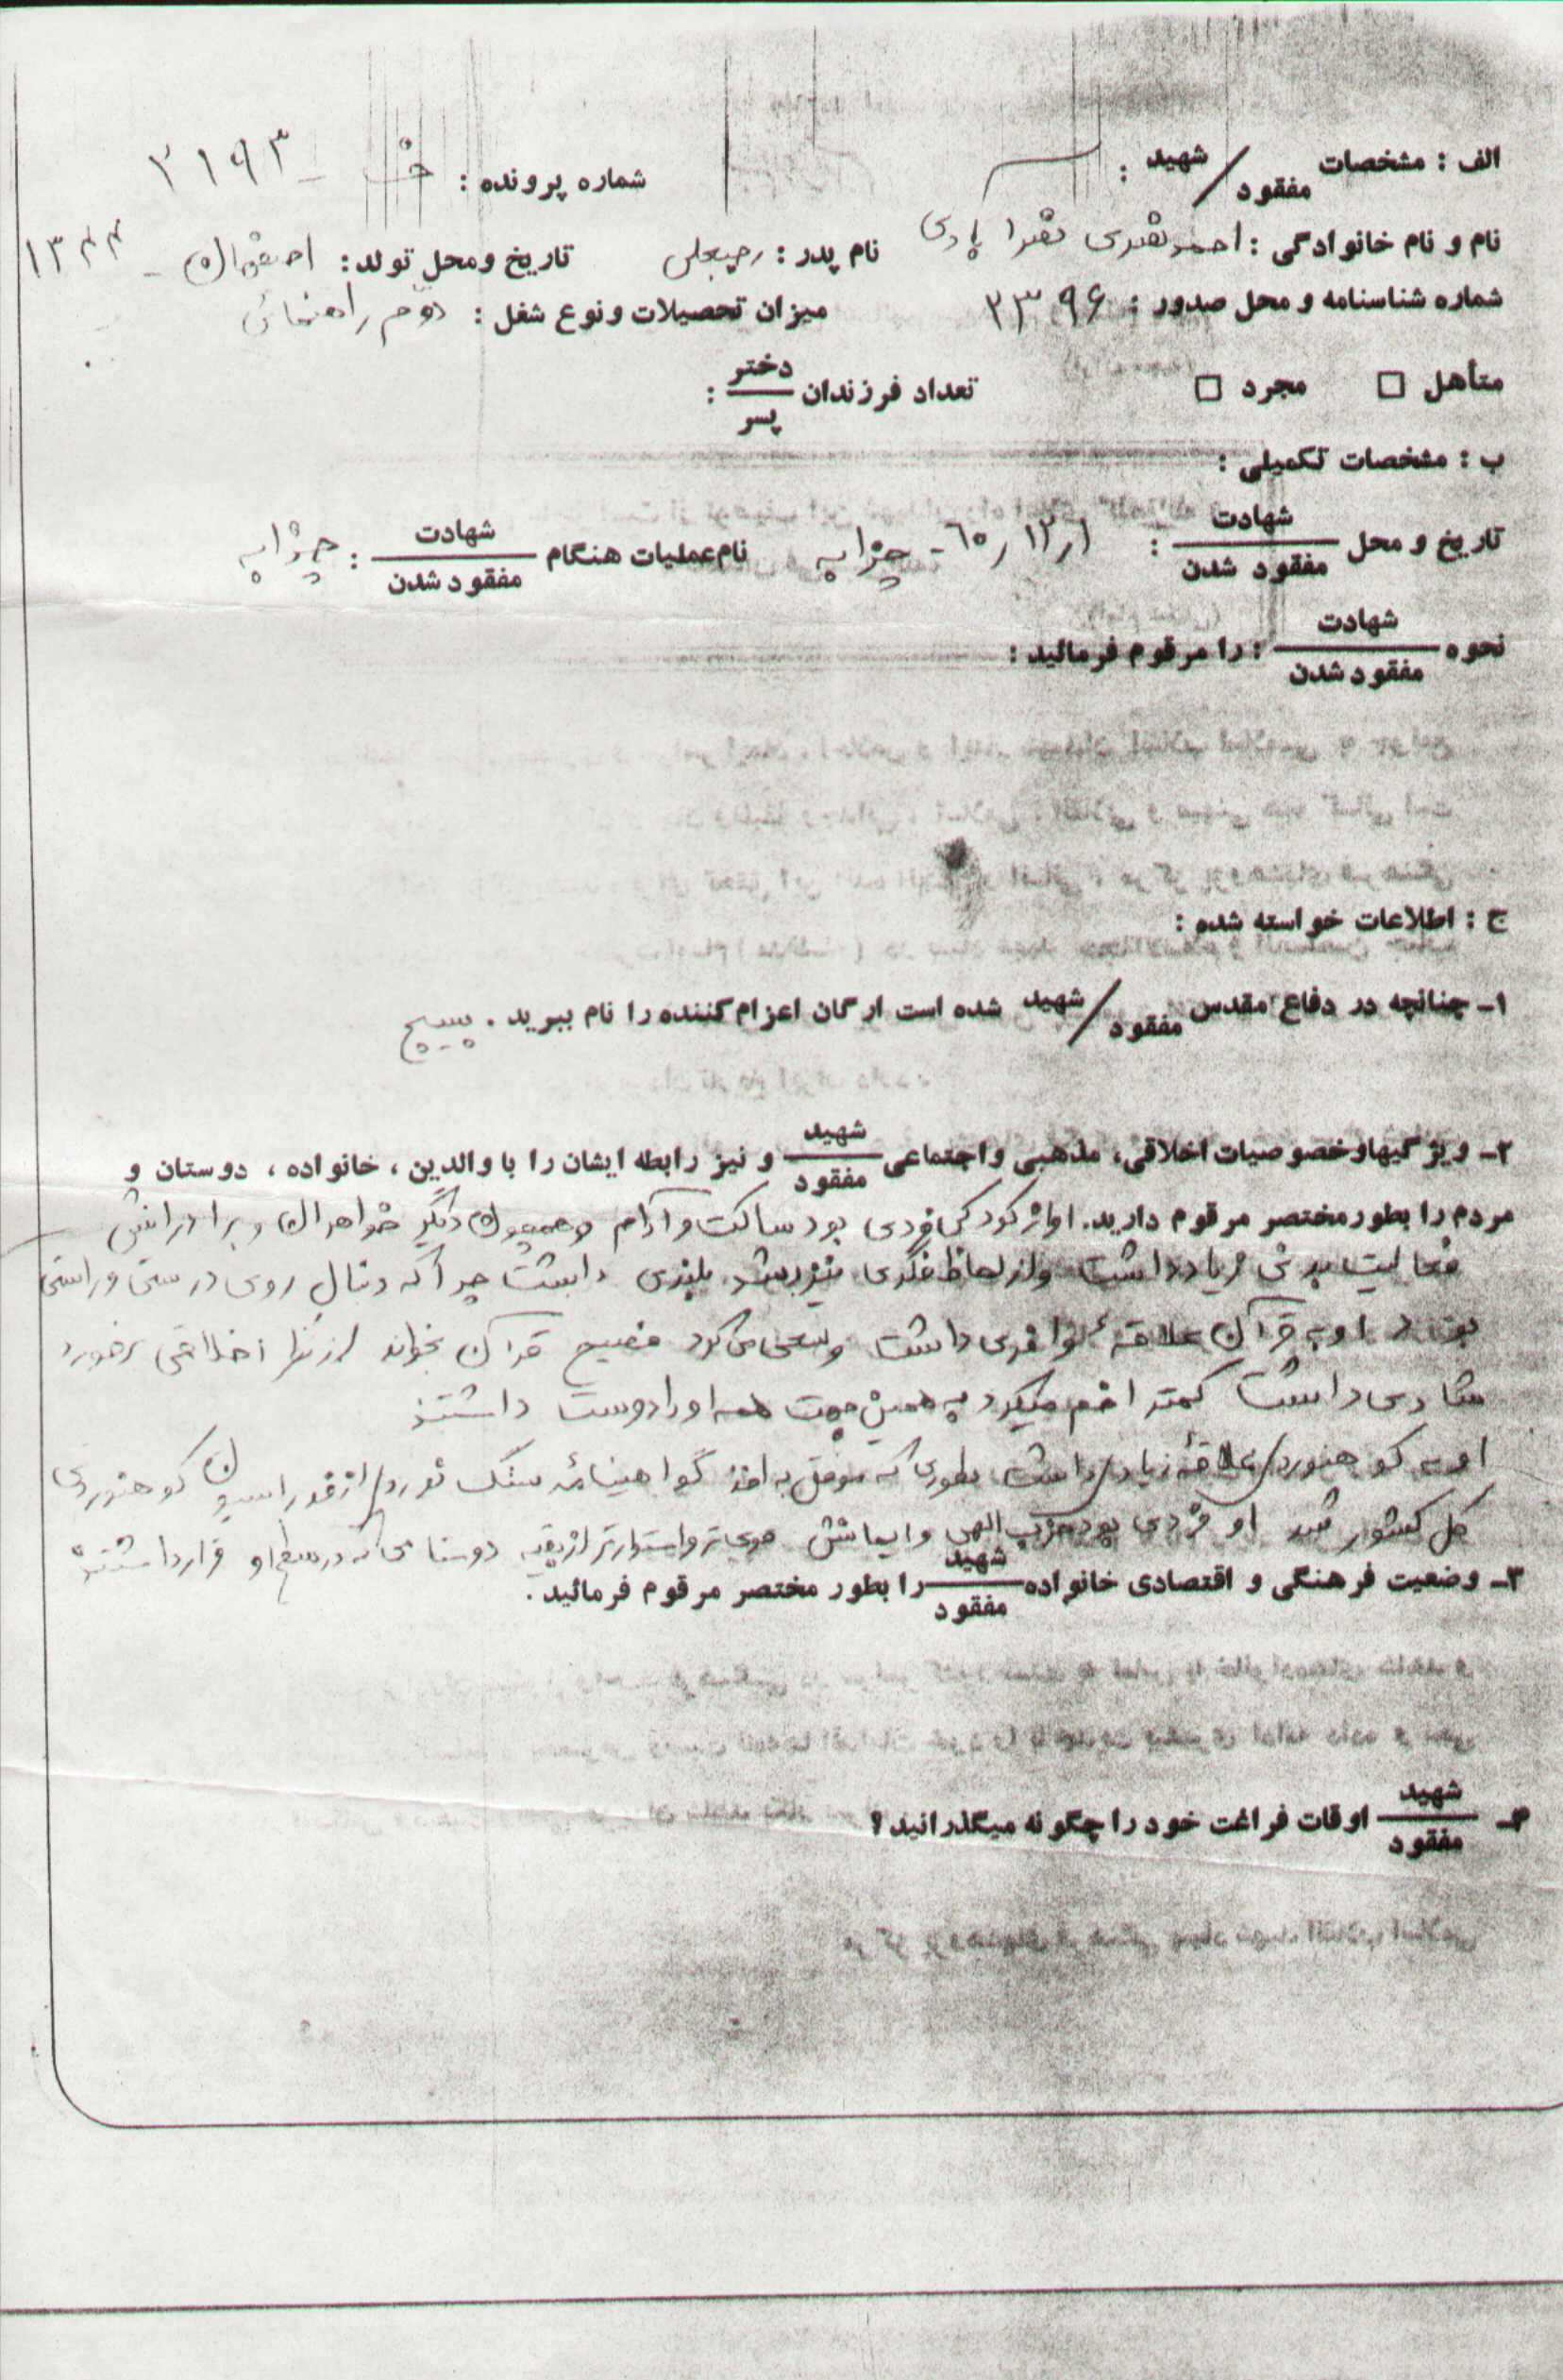 الف : مشخصات شهید / مفقود :
شماره پرونده : ۲۱۹۳
نام و نام خانوادگی : احمد نام پدر : رجبعلی تاریخ و محل تولد : اصفهان - ۱۳۴۴
شماره شناسنامه و محل صدور : ۲۳۹۶ میزان تحصیلات و نوع شغل : دوم راهنمائی
متأهل □ مجرد □ تعداد فرزندان دختر / پسر :
ب : مشخصات تکمیلی :
تاریخ و محل شهادت / مفقود شدن : ۱ر۱۲ر۶۰ - چزابه نام عملیات هنگام شهادت / مفقود شدن : چزابه
نحوه شهادت / مفقود شدن : را مرقوم فرمائید :
ج : اطلاعات خواسته شده :
۱- چنانچه در دفاع مقدس شهید / مفقود شده است ارگان اعزام کننده را نام ببرید . بسیج
۲- ویژگیها و خصوصیات اخلاقی، مذهبی و اجتماعی شهید / مفقود و نیز رابطه ایشان را با والدین ، خانواده ، دوستان و
مردم را بطور مختصر مرقوم دارید. او از کودکی فردی بود ساکت و آرام و همچون دیگر خواهران و برادرانش
فعالیت بدنی زیاد داشت و از لحاظ فکری نیز رشد بلندی داشت چرا که دنبال روی درستی و راستی
بود او به قرآن علاقهٔ وافری داشت و سعی می کرد فصیح قرآن بخواند از نظر اخلاقی برخورد
شادی داشت کمتر اخم میکرد به همین جهت همه او را دوست داشتند
او به کوهنوردی علاقهٔ زیادی داشت بطوری که موفق به اخذ گواهینامه سنگ نوردی از فدراسیون کوهنوردی
کل کشور شد او فردی بود حزب الهی و ایمانش قوی تر و استوارتر از بقیه دوستانی که در سطح او قرار داشتند
۳- وضعیت فرهنگی و اقتصادی خانواده شهید / مفقود را بطور مختصر مرقوم فرمائید .
۴- شهید / مفقود اوقات فراغت خود را چگونه میگذرانید ؟